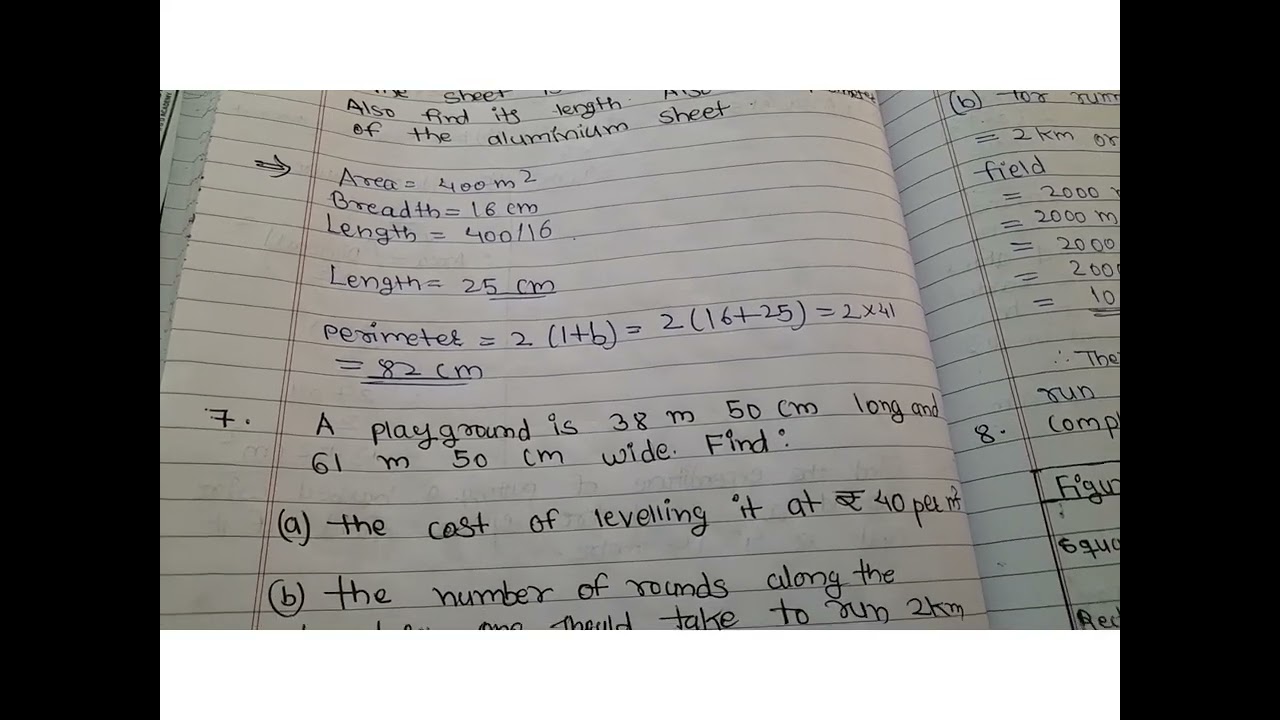 the sheet is
Also find its length. Also
of the aluminium sheet.
⇒ Area = 400 m²
Breadth = 16 cm
Length = 400/16
Length = 25 cm
perimeter = 2 (l+b) = 2(16+25) = 2×41
= 82 cm
7. A playground is 38 m 50 cm long and
61 m 50 cm wide. Find:
(a) the cost of levelling it at ₹ 40 per m²
(b) the number of rounds along the
one should take to run 2km
(b) for runn
= 2 km or
field
= 2000 m
= 2000 m
= 2000
= 2000
= 10
∴ The
run
8. comp
Figu
Squa
Rec